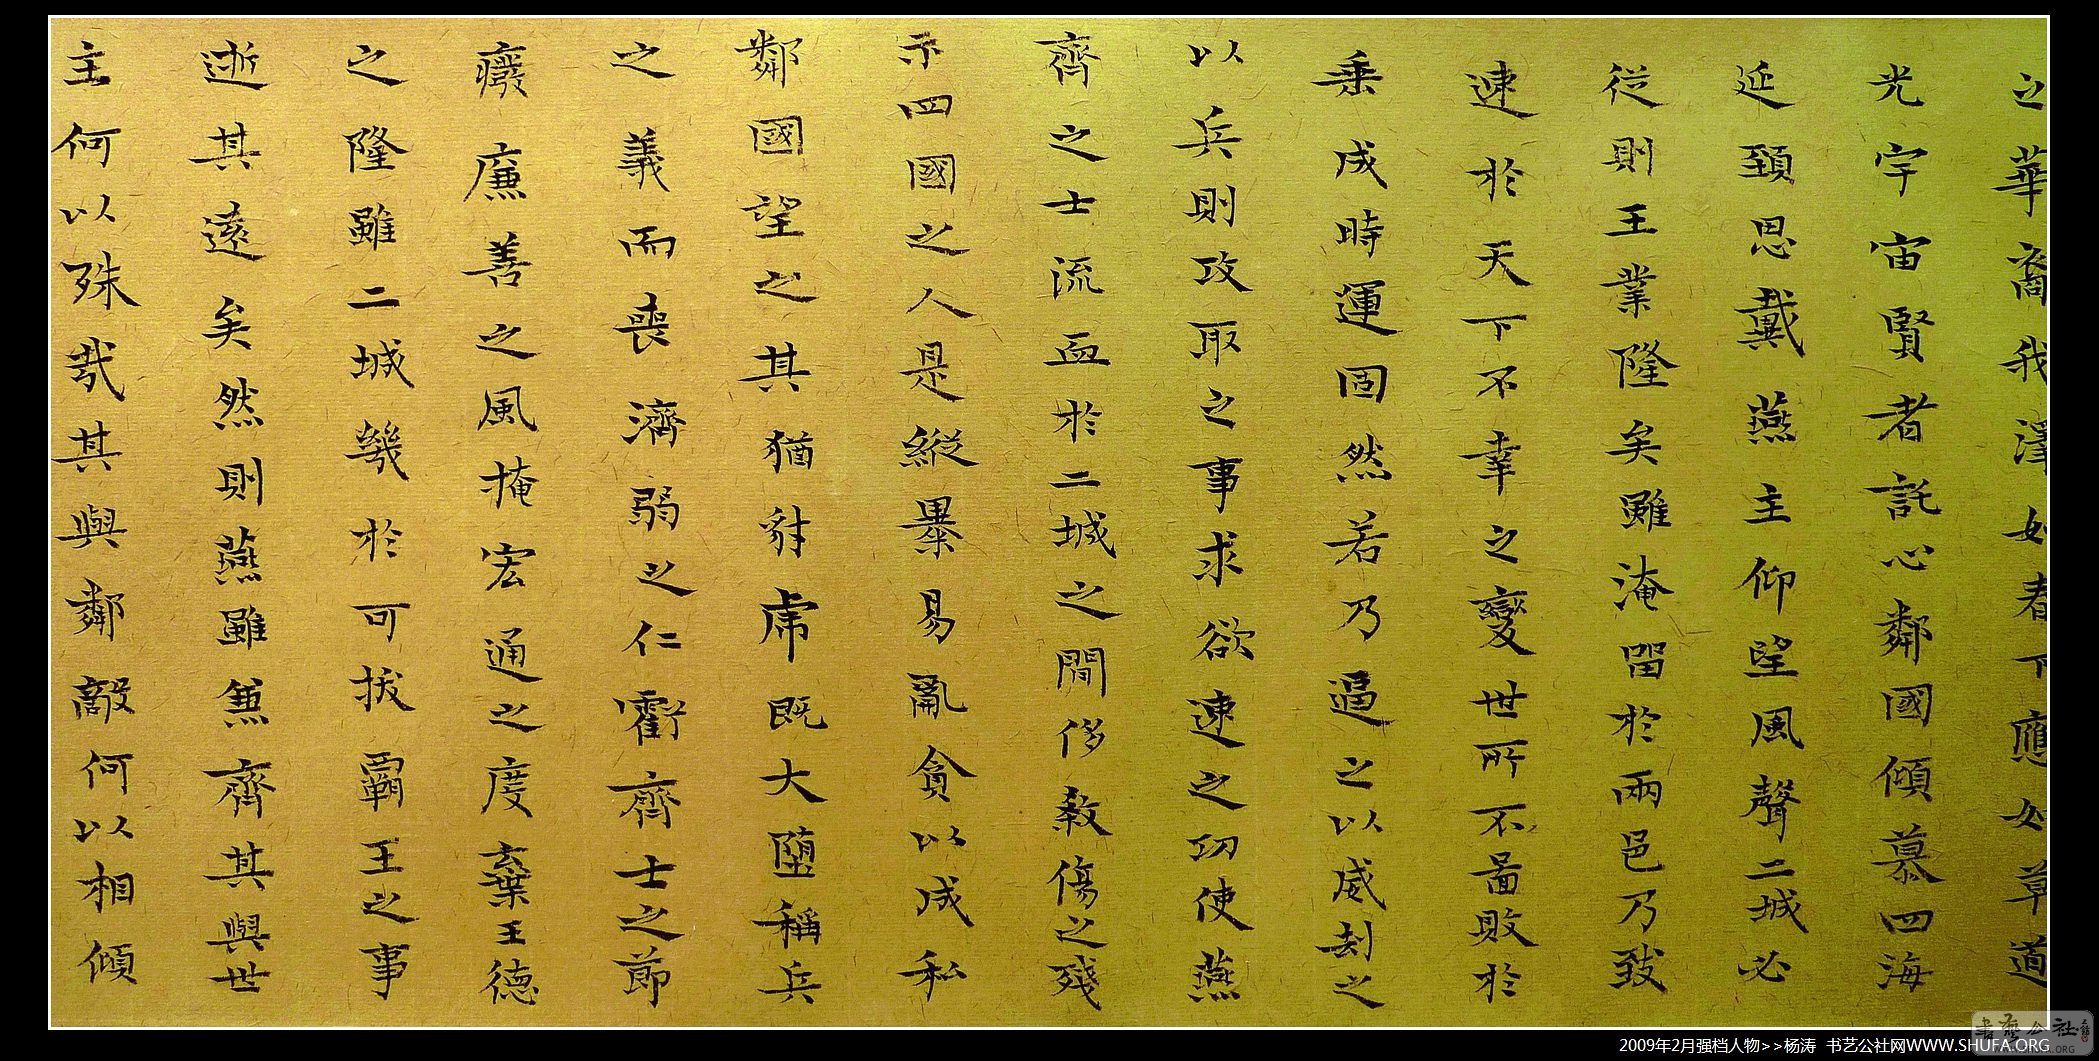 之華裔我澤如春下應如草道
光宇宙賢者託心鄰國傾慕四海
延頸思戴燕主仰望風聲二城必
從則王業隆矣雖淹留於兩邑乃致
速於天下不幸之變世所不圖敗於
乗成時運固然若乃逼之以威劫之
以兵則攻取之事求欲速之功使燕
齊之士流血於二城之間侈殺傷之殘
示四國之人是縱暴易亂貪以成私
鄰國望之其猶豺虎既大墮稱兵
之義而喪濟弱之仁虧齊士之節
癈廉善之風掩宏通之度棄王德
之隆雖二城幾於可拔霸王之事
逝其遠矣然則燕雖兼齊其與世
主何以殊哉其與鄰敵何以相傾
2009年2月强档人物>>杨涛 书艺公社网WWW.SHUFA.ORG